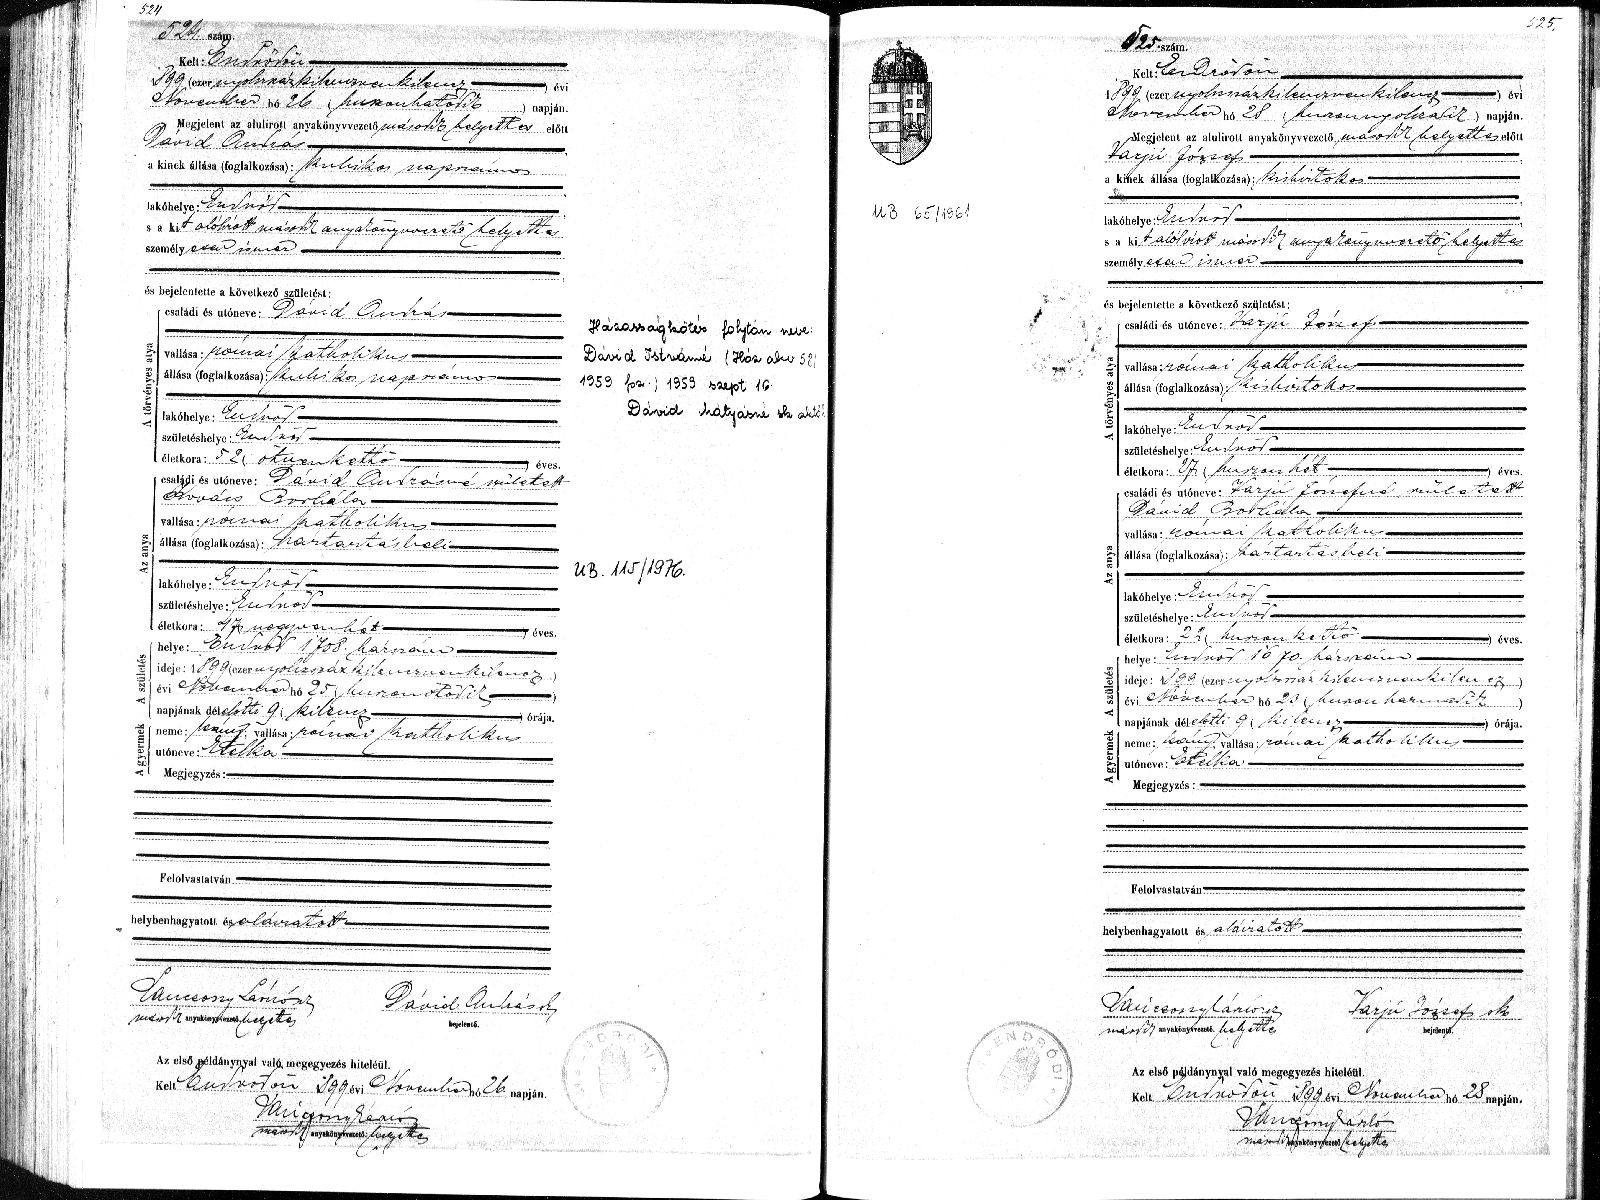 524
524. szám.
Kelt: Endrődön
1899 (ezer nyolcszázkilenczvenkilencz) évi
November hó 26 (huszonhatodik) napján.
Megjelent az alulirott anyakönyvvezető második helyettes előtt
Dávid András
a kinek állása (foglalkozása): kubikos napszámos
lakóhelye: Endrőd
s a kit alólirott második anyakönyvvezető helyettes
személyesen ismer
és bejelentette a következő születést:
A törvényes atya
családi és utóneve: Dávid András
vallása: római katholikus
állása (foglalkozása): kubikos napszámos
lakóhelye: Endrőd
születéshelye: Endrőd
életkora: 52 (ötvenkettő) éves.
Az anya
családi és utóneve: Dávid Andrásné született
Kovács Borbála
vallása: római katholikus
állása (foglalkozása): háztartásbeli
lakóhelye: Endrőd
születéshelye: Endrőd
életkora: 47 negyvenhét) éves.
A születés
helye: Endrőd 1708. házszám
ideje: 1899 (ezer nyolcszázkilenczvenkilencz)
évi November hó 25 (huszonötödik)
napjának délelőtti 9 (kilencz) órája.
A gyermek
neme: leány. vallása: római katholikus
utóneve: Etelka
Megjegyzés:
Felolvastatván
helybenhagyatott és aláiratott
Vaniesony László
második anyakönyvvezető helyettes
Dávid András sk
bejelentő.
Az első példánynyal való megegyezés hiteléül.
Kelt Endrődön 1899 évi November hó 26 napján.
második anyakönyvvezető helyettes
Házasságkötés folytán neve:
Dávid Istvánné (Ház akv 52/
1959 fsz.) 1959 szept 16.
Dávid Mátyásné sk akv.
UB. 115/1976.
525.
525. szám.
UB 65/1961
Kelt: Endrődön
1899 (ezer nyolcszázkilenczvenkilencz) évi
November hó 28 (huszonnyolczadik) napján.
Megjelent az alulirott anyakönyvvezető második helyettes előtt
Varjú József
a kinek állása (foglalkozása): kisbirtokos
lakóhelye: Endrőd
s a kit alólirott második anyakönyvvezető helyettes
személyesen ismer
és bejelentette a következő születést:
A törvényes atya
családi és utóneve: Varjú József
vallása: római katholikus
állása (foglalkozása): kisbirtokos
lakóhelye: Endrőd
születéshelye: Endrőd
életkora: 27 (huszonhét) éves.
Az anya
családi és utóneve: Varjú Józsefné született
Dávid Borbála
vallása: római katholikus
állása (foglalkozása): háztartásbeli
lakóhelye: Endrőd
születéshelye: Endrőd
életkora: 22 (huszonkettő) éves.
A születés
helye: Endrőd 1070. házszám
ideje: 1899 (ezer nyolcszázkilenczvenkilencz)
évi November hó 23 (huszonharmadik)
napjának délelőtti 9 (kilencz) órája.
A gyermek
neme: leány. vallása: római katholikus
utóneve: Etelka
Megjegyzés:
Felolvastatván
helybenhagyatott és aláiratott
második anyakönyvvezető helyettes
Varjú József sk
bejelentő.
ENDRŐDI
Az első példánynyal való megegyezés hiteléül.
Kelt Endrődön 1899 évi November hó 28 napján.
második anyakönyvvezető helyettes